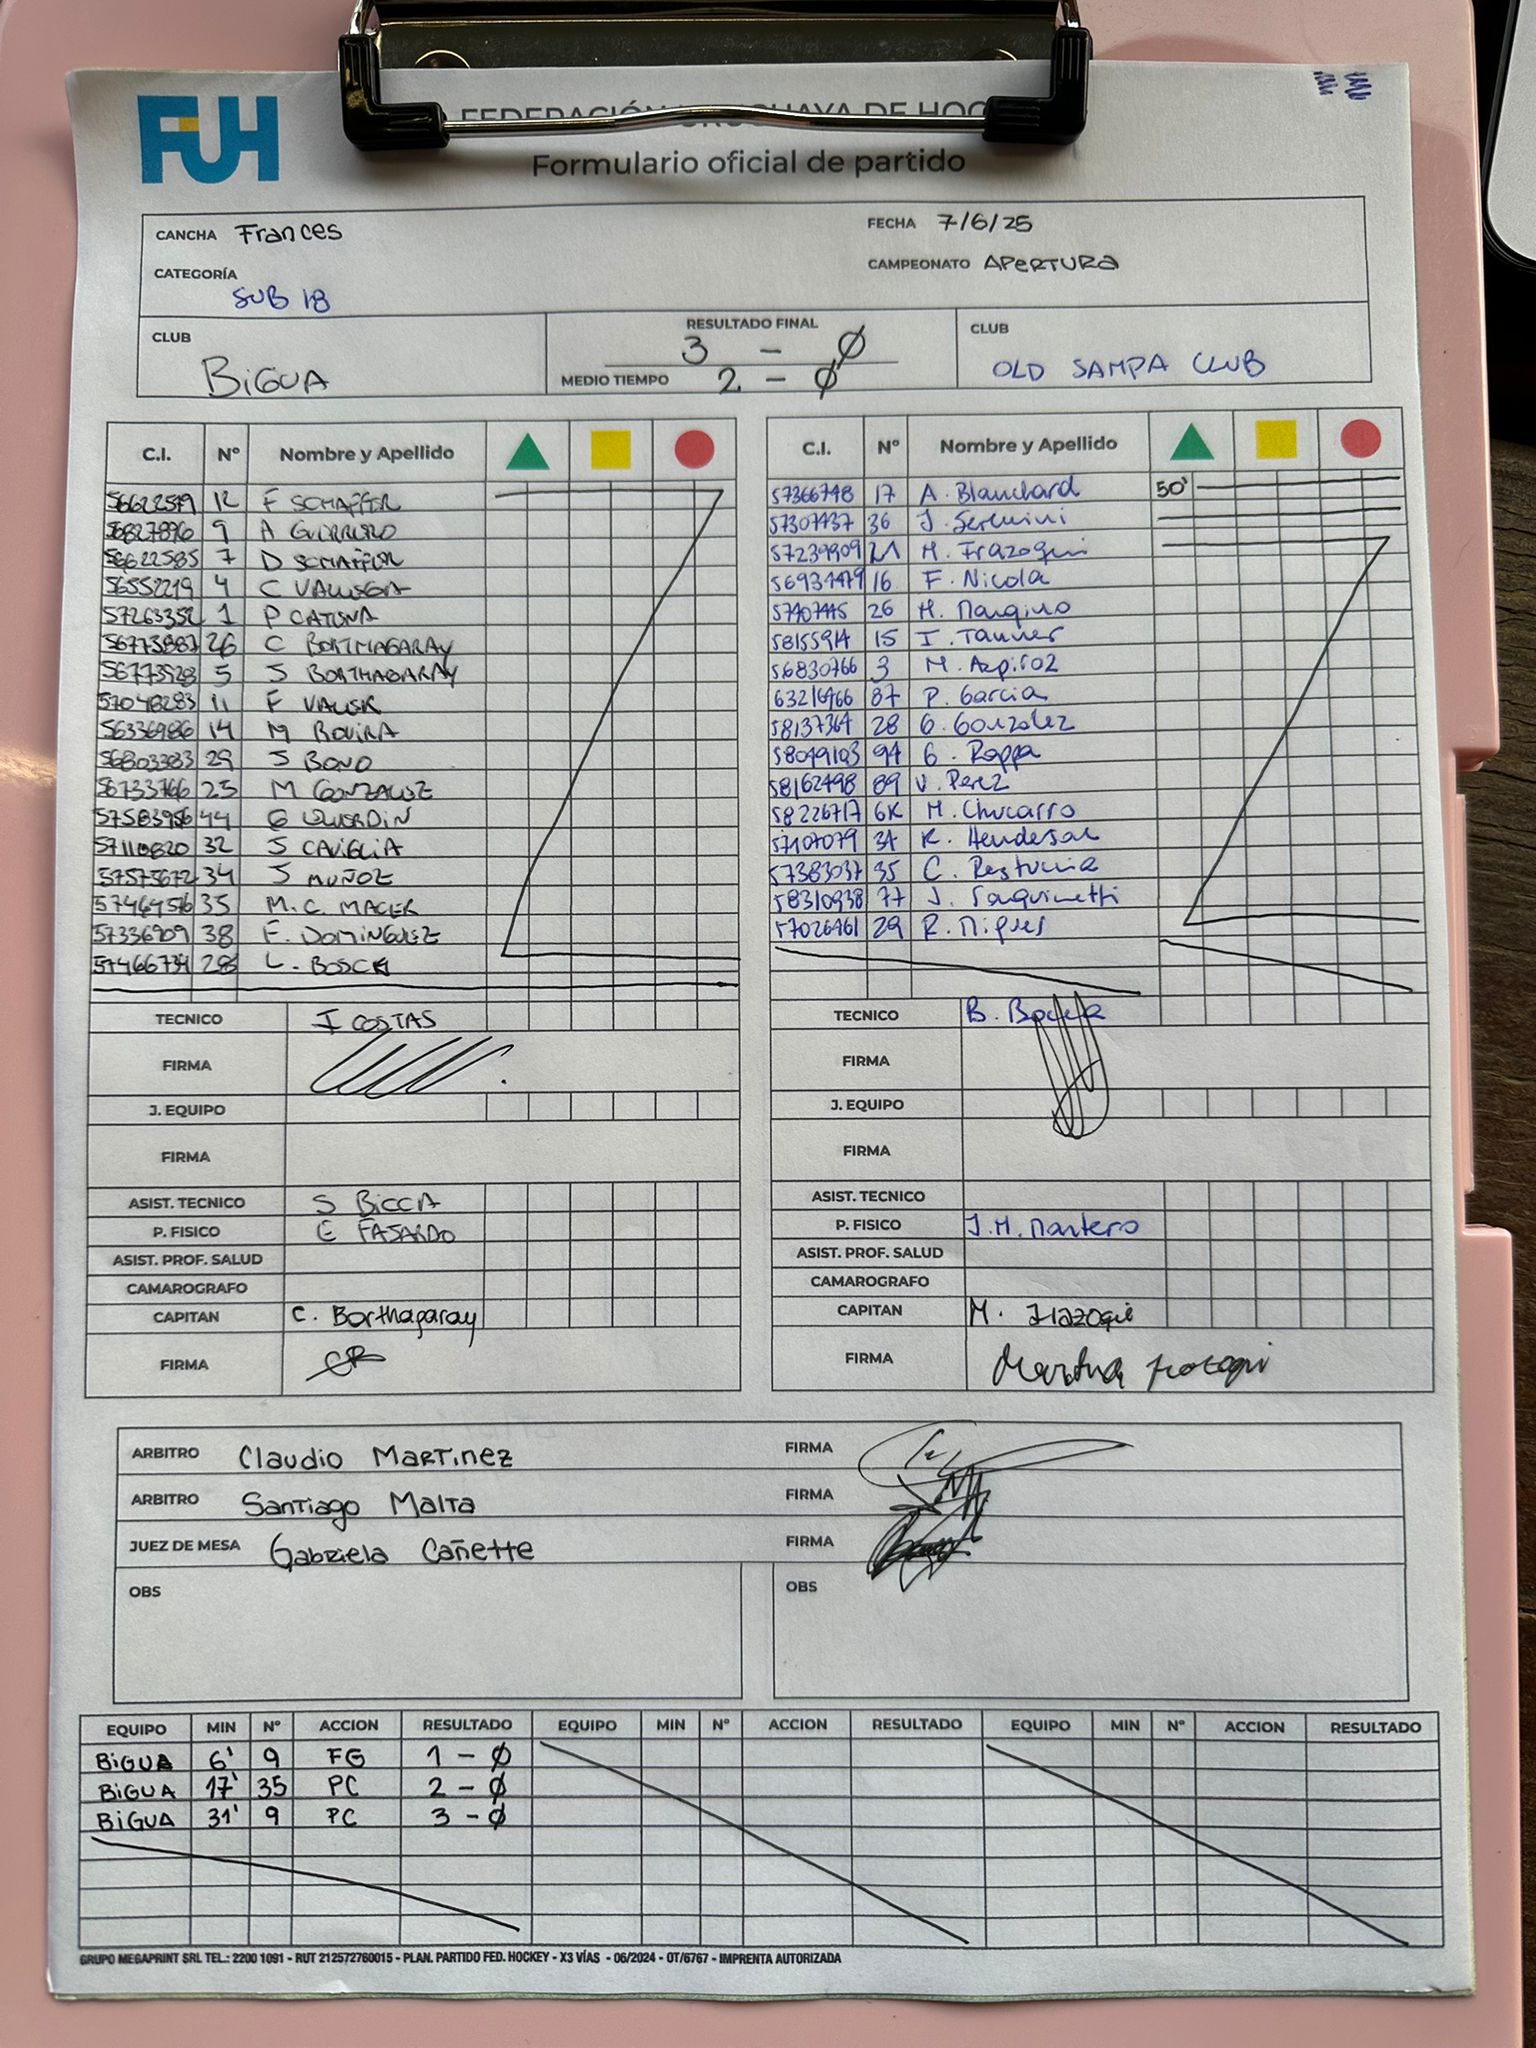 FUH
FEDERACIÓN URUGUAYA DE HOC
Formulario oficial de partido
CANCHA Frances
FECHA 7/6/25
CATEGORÍA SUB 18
CAMPEONATO APERTURA
CLUB BIGUA
RESULTADO FINAL 3 - 0
MEDIO TIEMPO 2 - 0
CLUB OLD SAMPA CLUB
C.I. Nº Nombre y Apellido
12 F SCHAFFER
9 A GUERRERO
56622585 7 D SCHAFFER
56552219 4 C
57263352 1 P
56773887 26 C BORTHAGARAY
56773528 5 S BORTHAGARAY
57048283 11 F
56336986 14 M ROVIRA
56803383 29 S BONO
56733766 23 M GONZALEZ
57583956 44 G
57110820 32 S CAVIGLIA
57575672 34 S MUÑOZ
57464576 35 M. C. MACER
57336909 38 F. DOMINGUEZ
57466734 28 L. BOSCH
TECNICO I COSTAS
FIRMA
J. EQUIPO
FIRMA
ASIST. TECNICO S BICCA
P. FISICO E FAJARDO
ASIST. PROF. SALUD
CAMAROGRAFO
CAPITAN C. Borthagaray
FIRMA
C.I. Nº Nombre y Apellido
57366748 17 A. Blanchard 50'
57307437 36 J.
57239909 21 M. Irazoqui
16 F. Nicola
26 M.
58155914 15 I. Tanner
56830766 3 M. Azpiroz
87 P. Garcia
58137364 28 G. Gonzalez
94 G. Rappa
58162498 89 V. Perez
58226717 M. Chucarro
57107079 34 K. Henderson
57383037 35 C. Restuccia
58310938 77 J. Sanguinetti
57026461 29 R.
TECNICO B.
FIRMA
J. EQUIPO
FIRMA
ASIST. TECNICO
P. FISICO J.M. Mantero
ASIST. PROF. SALUD
CAMAROGRAFO
CAPITAN M. Irazoqui
FIRMA
ARBITRO Claudio Martinez FIRMA
ARBITRO Santiago Malta FIRMA
JUEZ DE MESA Gabriela Cañette FIRMA
OBS
OBS
EQUIPO MIN Nº ACCION RESULTADO EQUIPO MIN Nº ACCION RESULTADO EQUIPO MIN Nº ACCION RESULTADO
BIGUA 6' 9 FG 1 - 0
BIGUA 17' 35 PC 2 - 0
BIGUA 31' 9 PC 3 - 0
GRUPO MEGAPRINT SRL TEL.: 2200 1091 - RUT 212572760015 - PLAN. PARTIDO FED. HOCKEY - X3 VÍAS - 06/2024 - OT/6767 - IMPRENTA AUTORIZADA